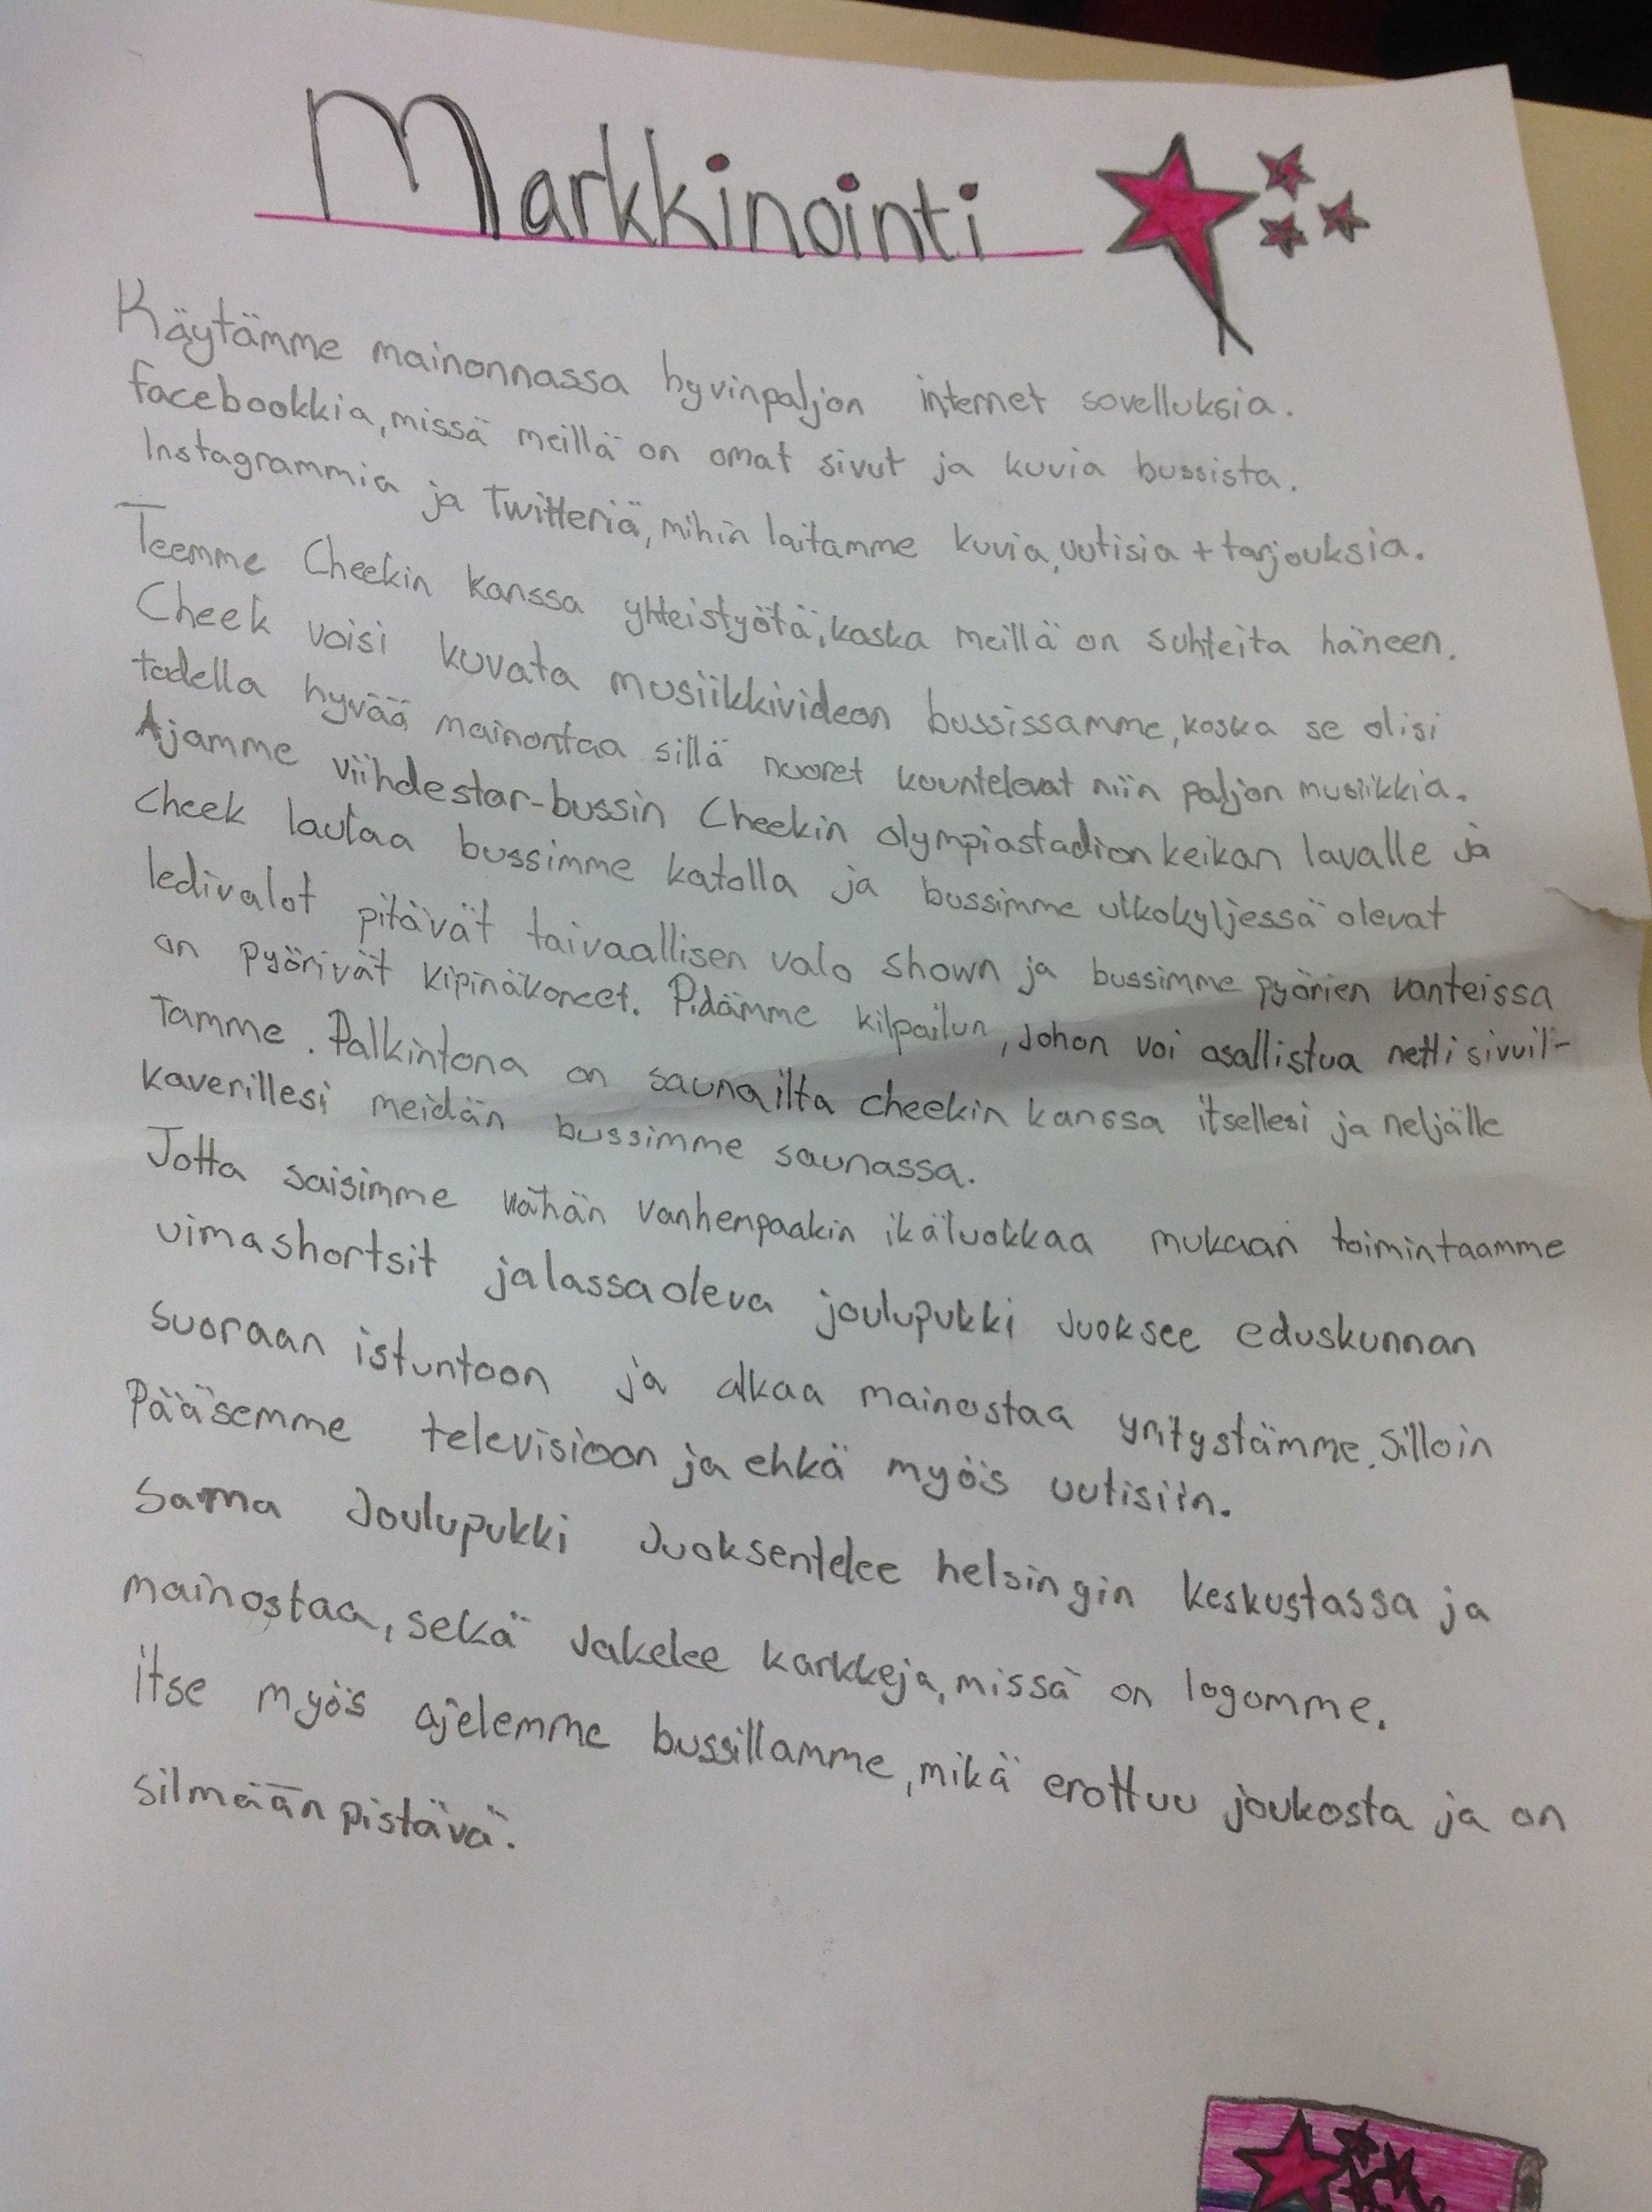 Markkinointi
Käytämme mainonnassa hyvinpaljon internet sovelluksia.
facebookkia, missä meillä on omat sivut ja kuvia bussista.
Instagrammia ja Twitteriä, mihin laitamme kuvia, uutisia + tarjouksia.
Teemme Cheekin kanssa yhteistyötä, koska meillä on suhteita häneen.
Cheek voisi kuvata musiikkivideon bussissamme, koska se olisi
todella hyvää mainontaa sillä nuoret kuuntelevat niin paljon musiikkia.
Ajamme viihdestar-bussin Cheekin olympiastadion keikan lavalle ja
cheek laulaa bussimme katolla ja bussimme ulkokyljessä olevat
ledivalot pitävät taivaallisen valo shown ja bussimme pyörien vanteissa
on pyörivät kipinäkoneet. Pidämme kilpailun, johon voi osallistua netti sivuil-
tamme. Palkintona on saunailta cheekin kanssa itsellesi ja neljälle
kaverillesi meidän bussimme saunassa.
Jotta saisimme vähän vanhempaakin ikäluokkaa mukaan toimintaamme
uimashortsit jalassaoleva joulupukki juoksee eduskunnan
suoraan istuntoon ja alkaa mainostaa yritystämme. Silloin
Pääsemme televisioon ja ehkä myös uutisiin.
Sama Joulupukki Juoksentelee helsingin keskustassa ja
mainostaa, sekä Jakelee karkkeja, missä on logomme.
Itse myös ajelemme bussillamme, mikä erottuu joukosta ja on
silmään pistävä.